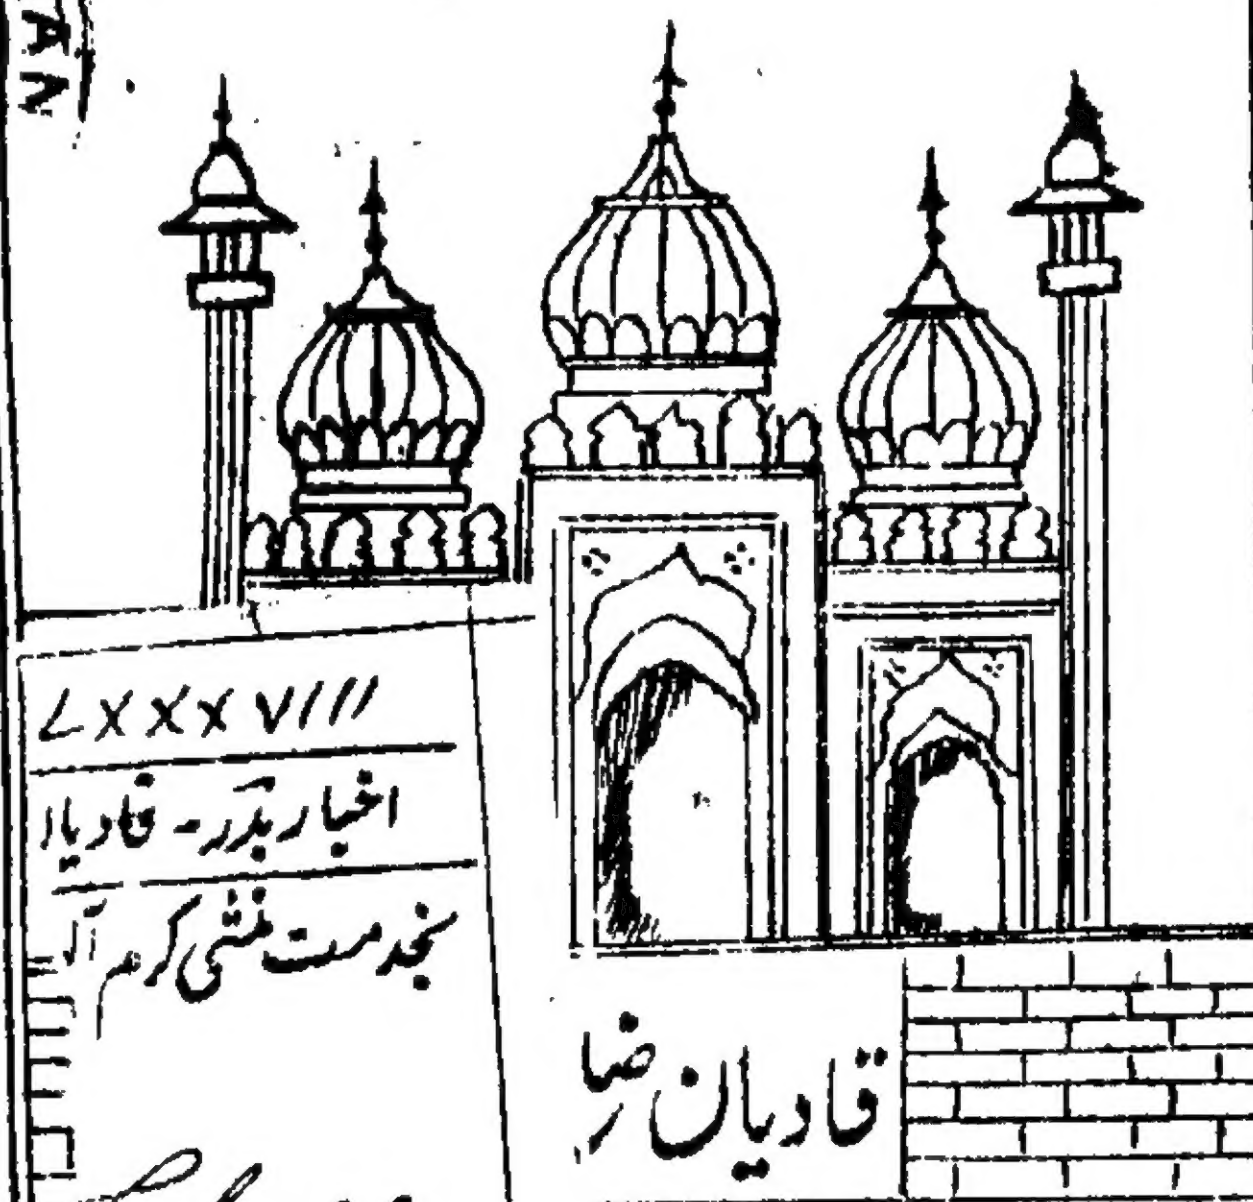 LXXXVIII
اخبار بدر - قادیا
بخدمت منشی کرم
قادیان